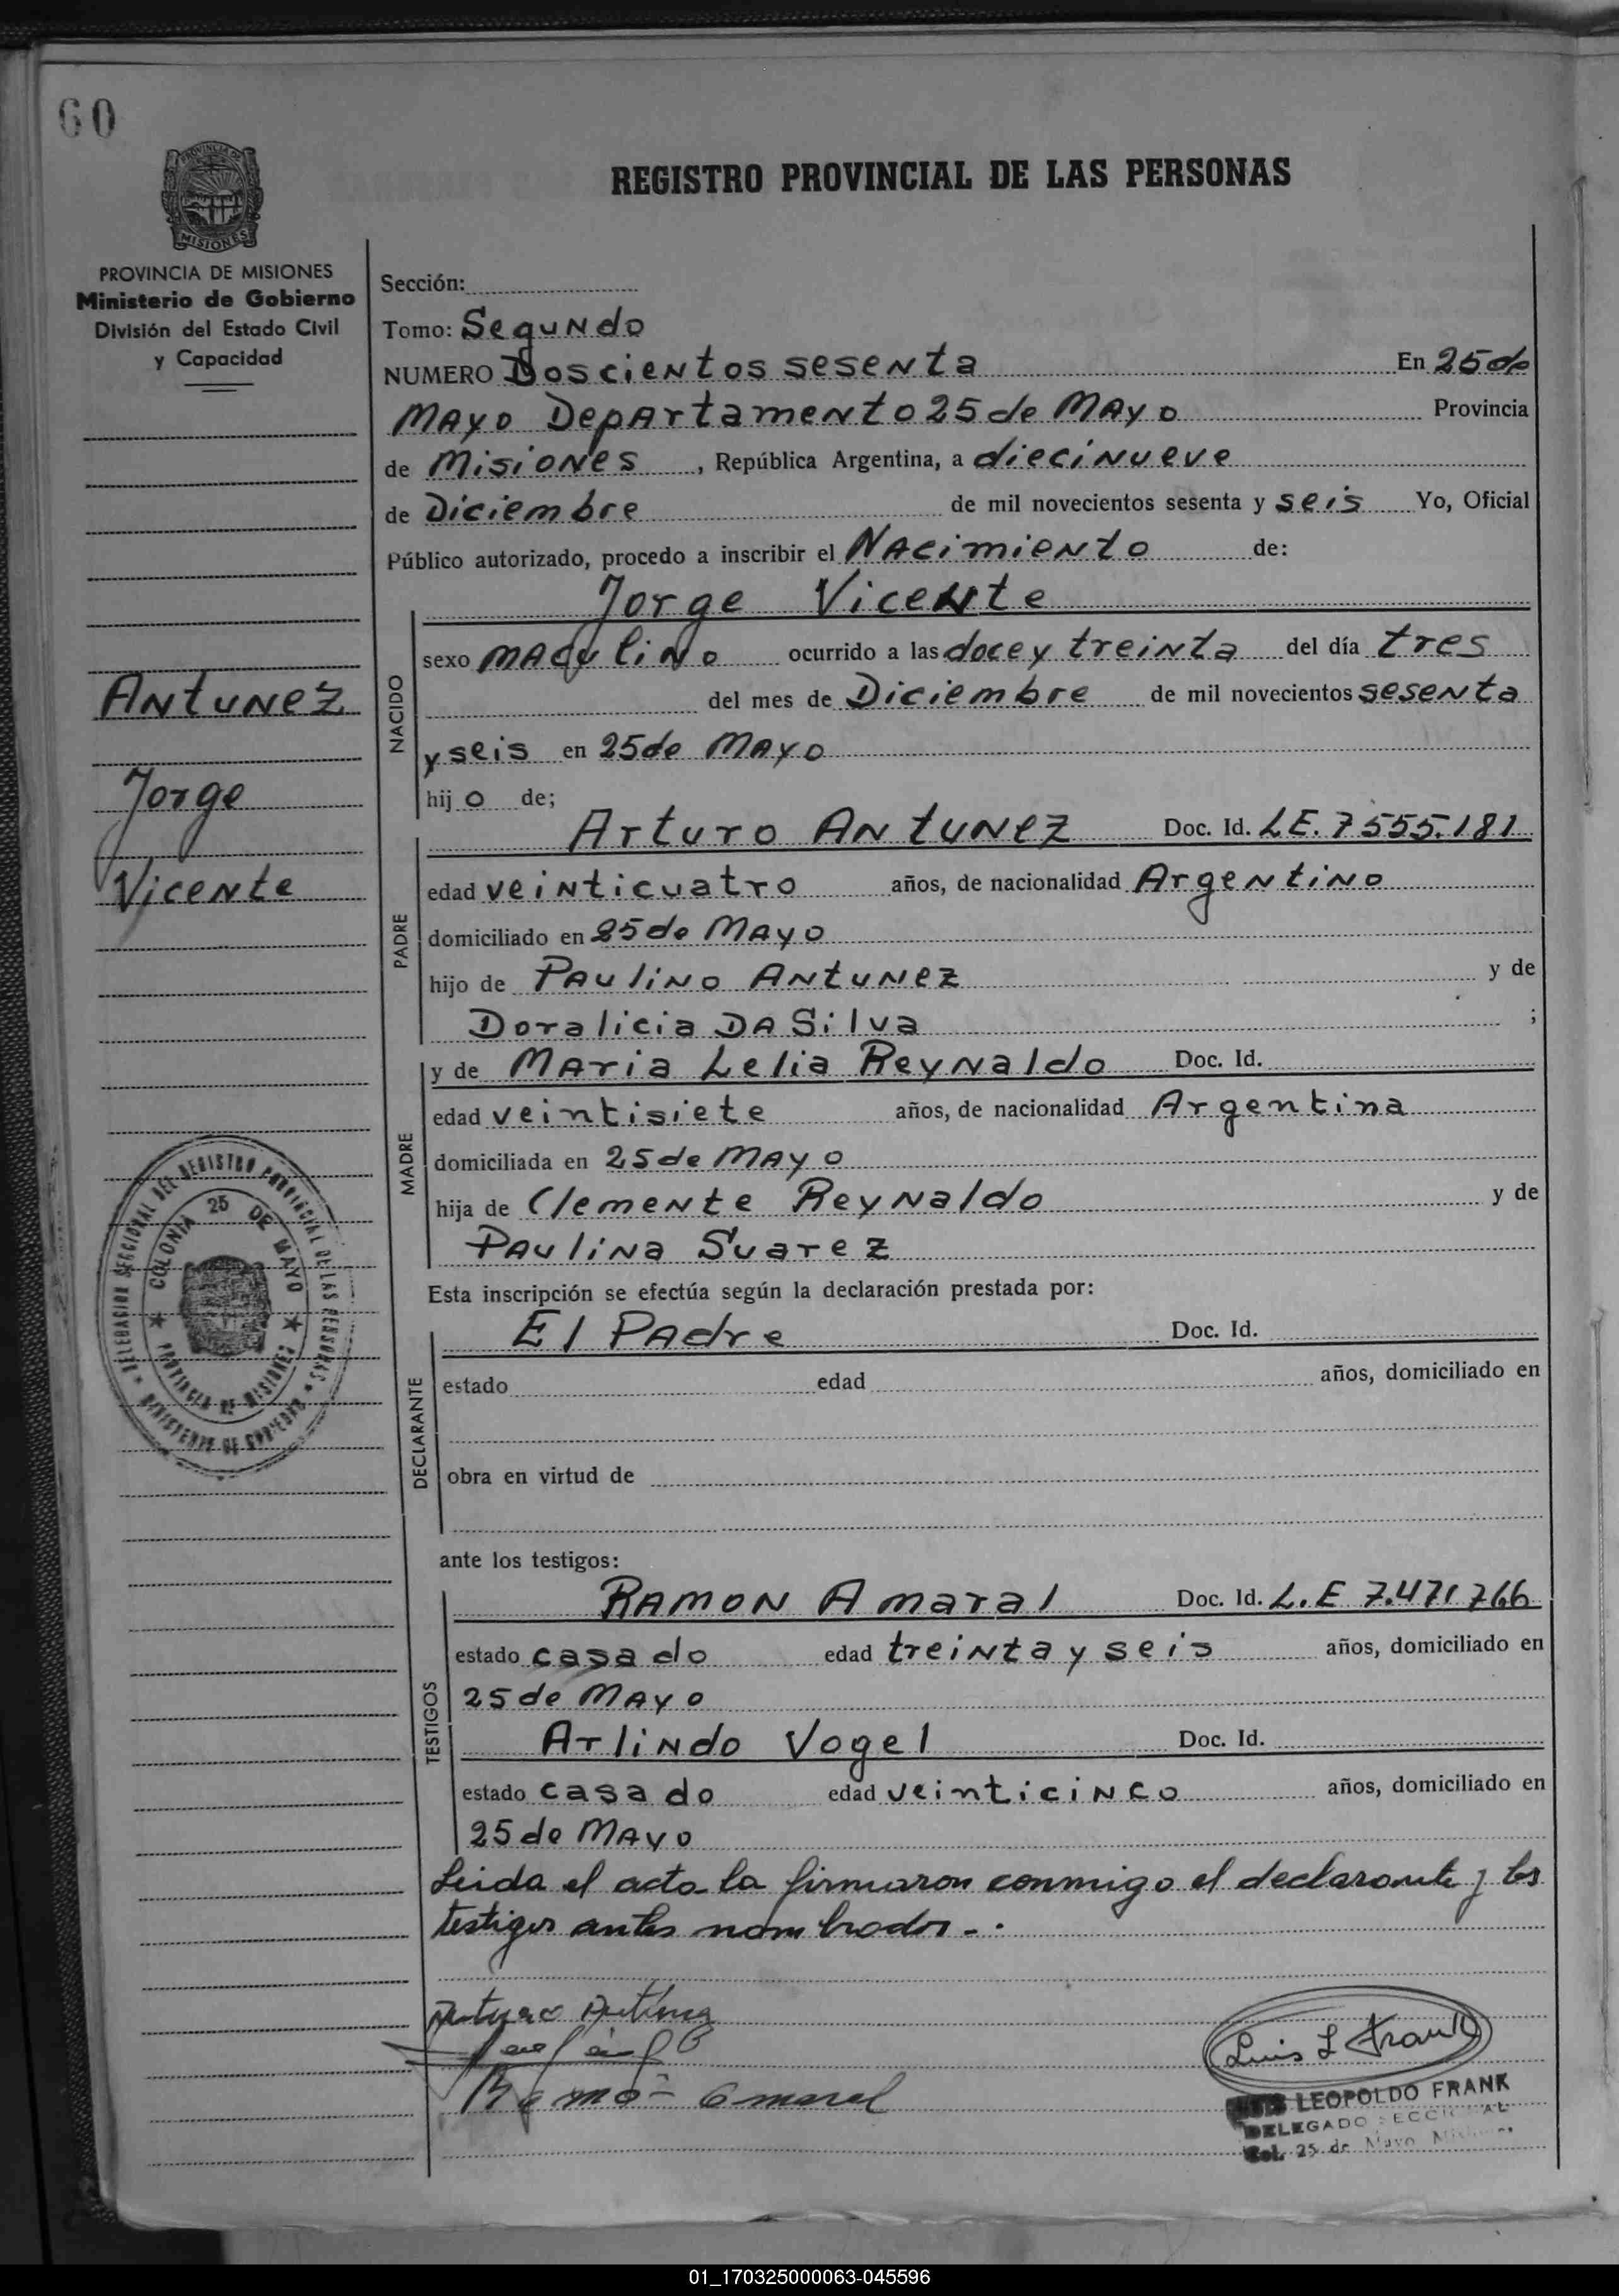 60
REGISTRO PROVINCIAL DE LAS PERSONAS
PROVINCIA DE MISIONES
MISIONES
PROVINCIA DE MISIONES
Ministerio de Gobierno
División del Estado Civil
y Capacidad
Antunez
Jorge
Vicente
DELEGACION SECCIONAL DEL REGISTRO PROVINCIAL DE LAS PERSONAS
MINISTERIO DE GOBIERNO
COLONIA 25 DE MAYO
PROVINCIA DE MISIONES
Sección:
Tomo: Segundo
NUMERO Doscientos sesenta En 25 de
Mayo Departamento 25 de Mayo Provincia
de Misiones, República Argentina, a diecinueve
de Diciembre de mil novecientos sesenta y seis Yo, Oficial
Público autorizado, procedo a inscribir el Nacimiento de:
NACIDO
Jorge Vicente
sexo maculino ocurrido a las doce y treinta del día tres
del mes de Diciembre de mil novecientos sesenta
y seis en 25 de Mayo
hij o de;
PADRE
Arturo Antunez Doc. Id. LE. 7555.181
edad veinticuatro años, de nacionalidad Argentino
domiciliado en 25 de Mayo
hijo de Paulino Antunez y de
Doralicia Da Silva ;
MADRE
y de Maria Lelia Reynaldo Doc. Id.
edad veintisiete años, de nacionalidad Argentina
domiciliada en 25 de Mayo
hija de Clemente Reynaldo y de
Paulina Suarez
Esta inscripción se efectúa según la declaración prestada por:
DECLARANTE
El Padre Doc. Id.
estado edad años, domiciliado en
obra en virtud de
ante los testigos:
TESTIGOS
Ramon Amaral Doc. Id. L.E 7.471766
estado casado edad treinta y seis años, domiciliado en
25 de Mayo
Arlindo Vogel Doc. Id.
estado casado edad veinticinco años, domiciliado en
25 de Mayo
Leida el acta la firmaron conmigo el declarante y los
testigos antes nombrados-.
Arturo Antunez
Ramón Amaral
Luis L Frank
LUIS LEOPOLDO FRANK
DELEGADO SECCIONAL
Col. 25 de Mayo Misiones
01_170325000063-045596